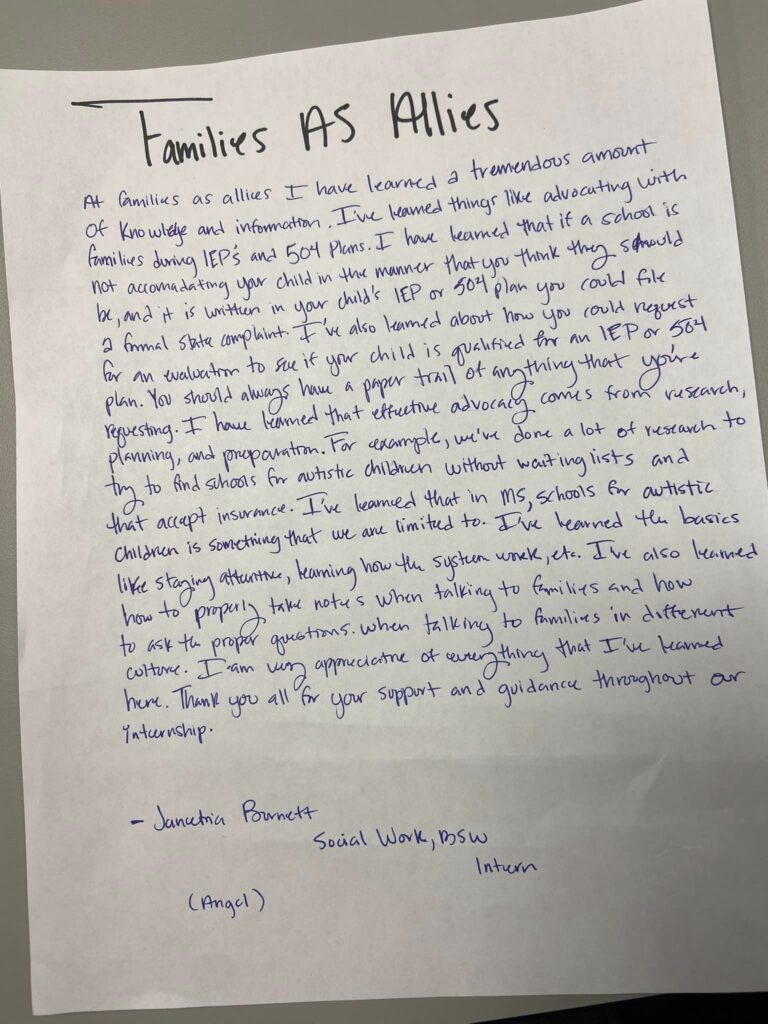 Families AS Allies
At families as allies I have learned a tremendous amount
of knowledge and information. I've learned things like advocating with
families during IEP's and 504 Plans. I have learned that if a school is
not accomadating your child in the manner that you think they should
be, and it is written in your child's IEP or 504 plan you could file
a formal state complaint. I've also learned about how you could request
for an evaluation to see if your child is qualified for an IEP or 504
plan. You should always have a paper trail of anything that you're
requesting. I have learned that effective advocacy comes from research,
planning, and preparation. For example, we've done a lot of research to
try to find schools for autistic children without waiting lists and
that accept insurance. I've learned that in MS, schools for autistic
children is something that we are limited to. I've learned the basics
like staying attentive, learning how the system work, etc. I've also learned
how to properly take notes when talking to families and how
to ask the proper questions. when talking to families in different
culture. I am very appreciative of everything that I've learned
here. Thank you all for your support and guidance throughout our
internship.
- Burnett
Social Work, BSW
Intern
(Angel)